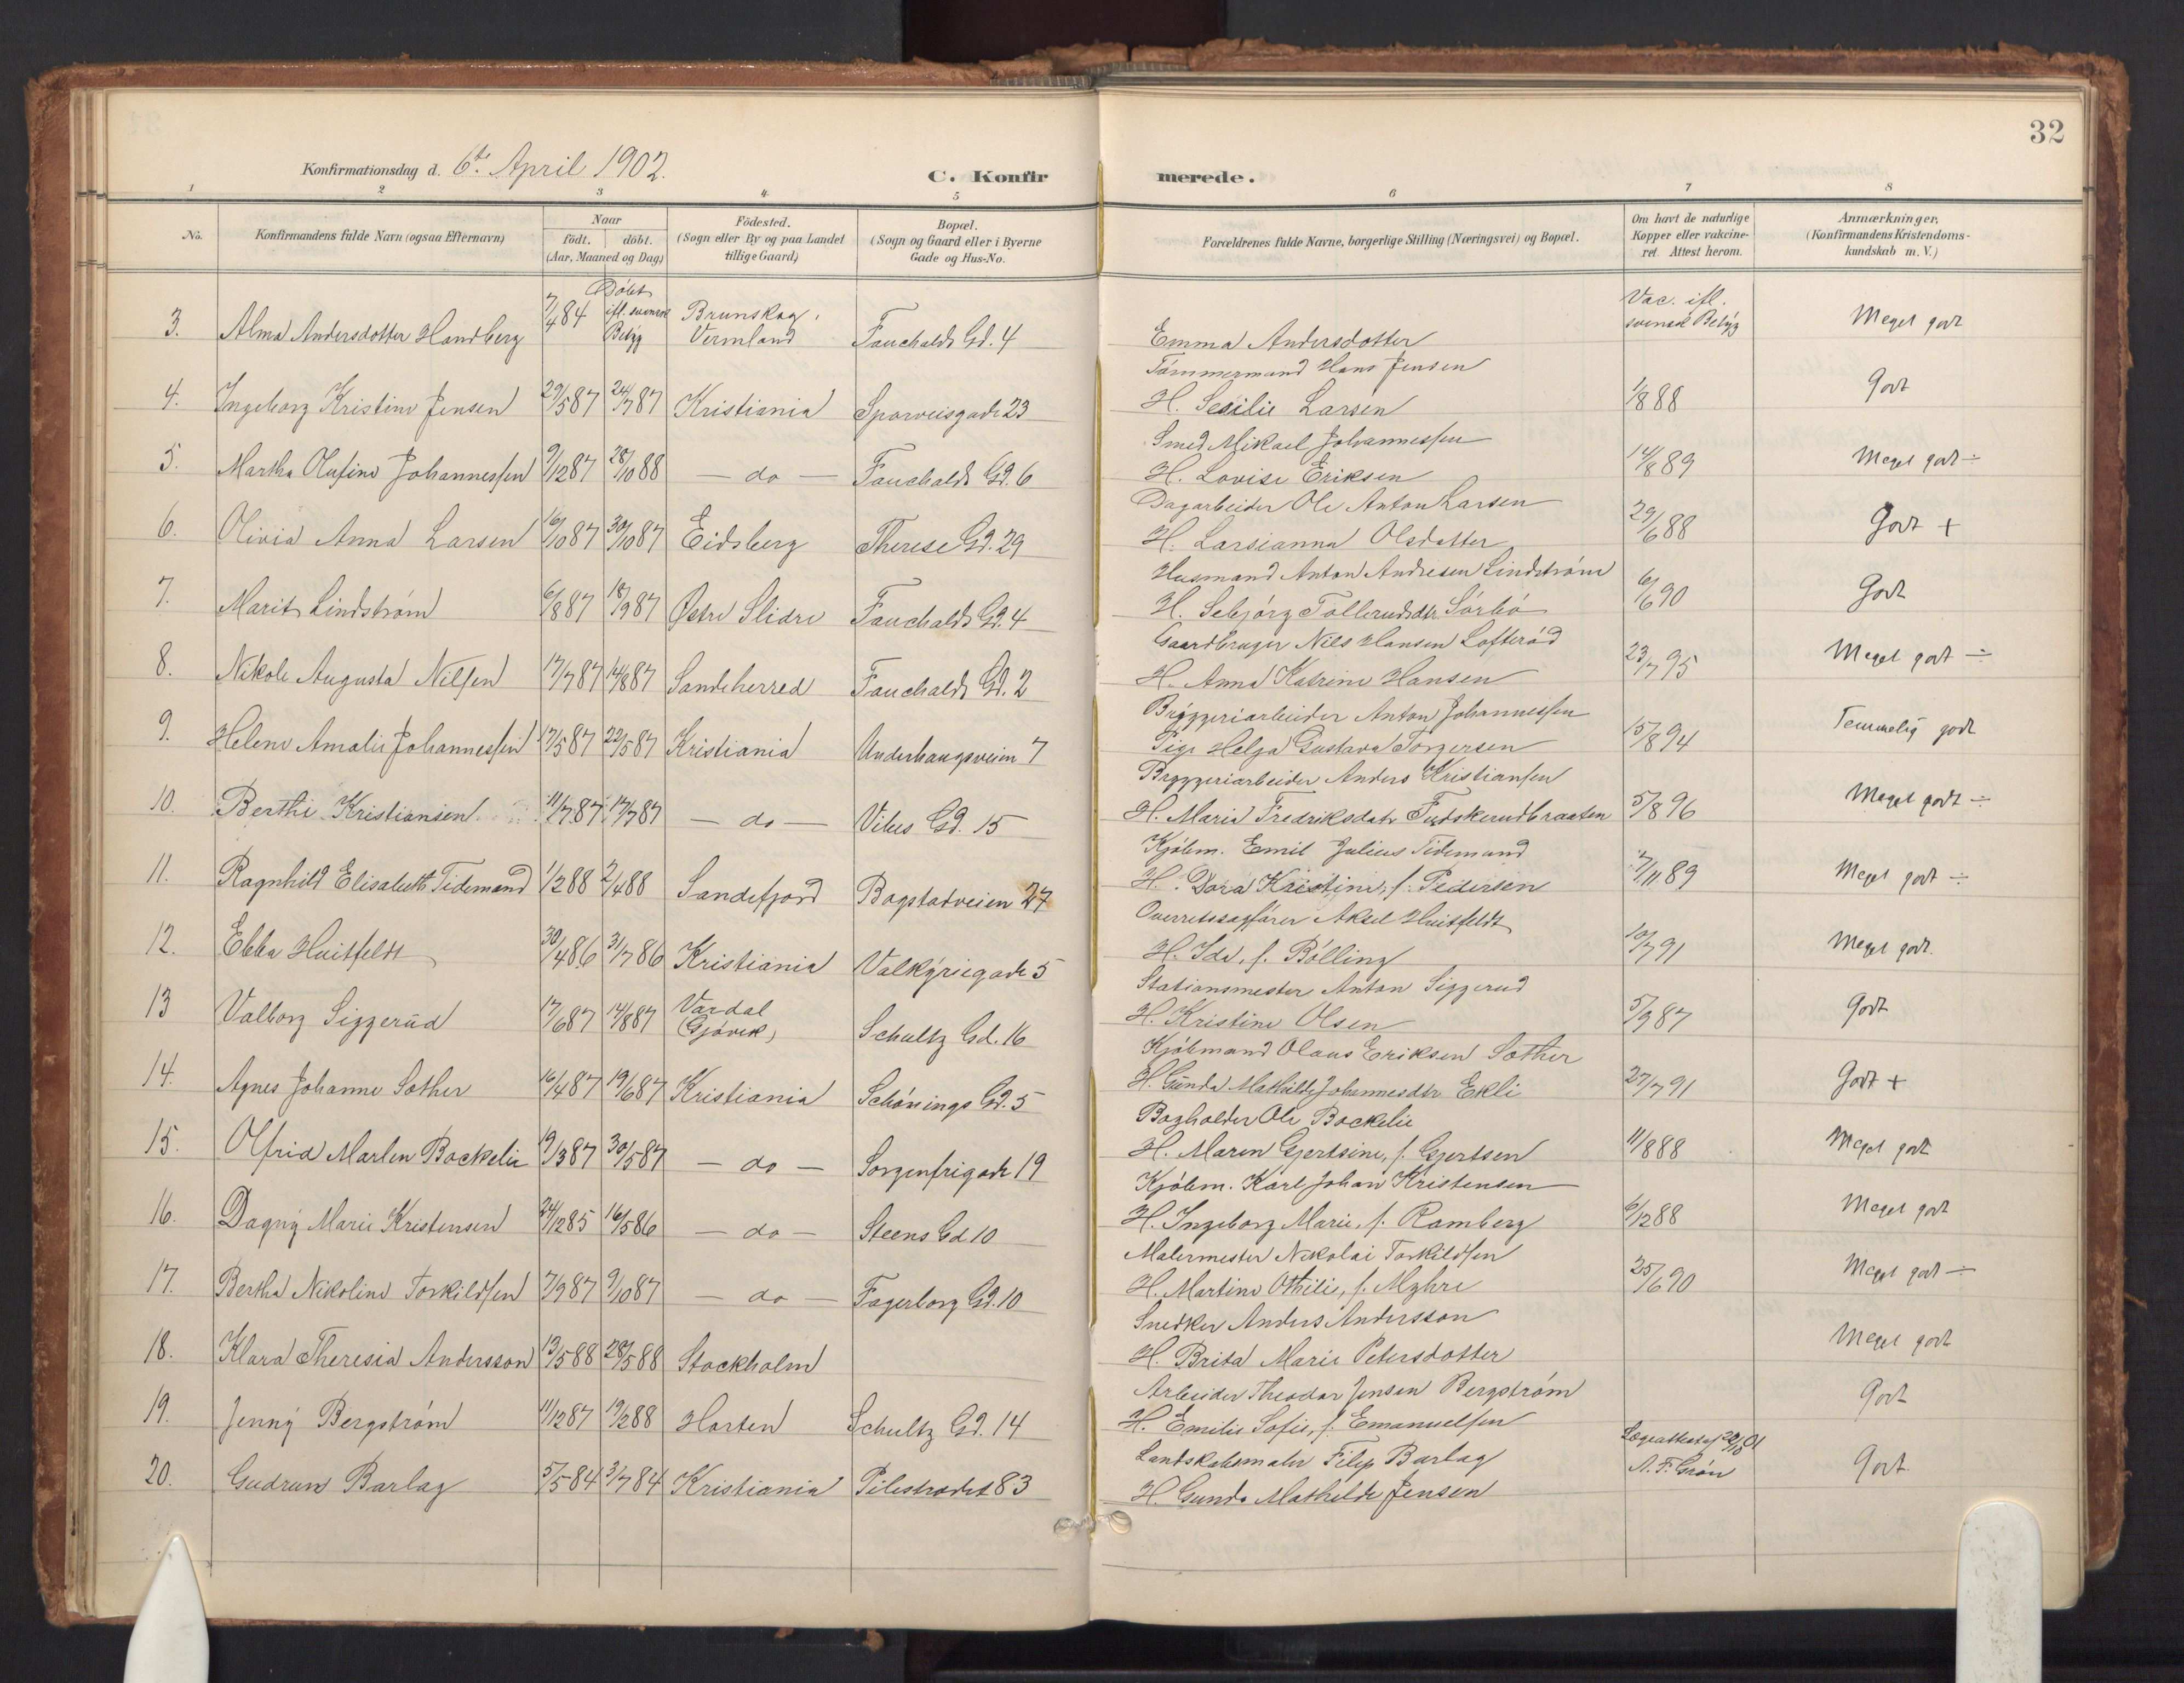 32
Konfirmationsdag d. 6te April 1902.
C. Konfirmerede.
1 2 3 4 5 6 7 8
No. | Konfirmandens fulde Navn (ogsaa Efternavn) | Naar født. døbt. (Aar, Maaned og Dag) | Fødested. (Sogn eller By og paa Landet tillige Gaard) | Bopæl. (Sogn og Gaard eller i Byerne Gade og Hus-No. | Forældrenes fulde Navne, borgerlige Stilling (Næringsvei) og Bopæl. | Om havt de naturlige Kopper eller vakcineret. Attest herom. | Anmærkninger. (Konfirmandens Kristendomskundskab m. V.)
3. Alma Andersdotter Handberg 7/4 84 Døbt ifl. svensk Betyg Brunskog, Vermland Fauchalds Gd. 4 Emma Andersdotter Vac. ifl. svensk Betyg Meget godt
4. Ingeborg Kristine Jensen 29/5 87 24/7 87 Kristiania Sporveisgade 23 Tømmermand Hans Jensen H. Sesilie Larsen 1/8 88 Godt
5. Martha Olufine Johannessen 9/12 87 28/10 88 - do - Fauchalds Gd. 6 Smed Mikael Johannessen H. Lovise Eriksen 14/8 89 Meget godt ÷
6. Olivia Anna Larsen 16/10 87 30/10 87 Eidsberg Therese Gd. 29 Dagarbeider Ole Anton Larsen H. Larsianna Olsdatter 29/6 88 Godt +
7. Marit Lindstrøm 6/8 87 18/9 87 Østre Slidre Fauchalds Gd. 4 Husmand Anton Andresen Lindstrøm H. Sebjørg Tollerudsdtr. Sørbø 6/6 90 Godt
8. Nikole Augusta Nilsen 17/7 87 14/8 87 Sandeherred Fauchalds Gd. 2 Gaardbruger Nils Hansen Lofterød H. Anna Katrine Hansen 23/7 95 Meget godt ÷
9. Helene Amalie Johannessen 17/5 87 22/5 87 Kristiania Underhaugsveien 7 Bryggeriarbeider Anton Johannessen Pige Helga Gustava Torgersen 15/8 94 Temmelig godt
10. Berthe Kristiansen 11/7 87 17/7 87 - do - Vibes Gd. 15 Bryggeriarbeider Anders Kristiansen H. Maria Fredriksdatr. Fudskerudbraaten 5/8 96 Meget godt ÷
11. Ragnhild Elisabeth Tidemand 1/2 88 2/4 88 Sandefjord Bogstadveien 27 Kjøbm. Emil Julius Tidemand H. Dora Kristine, f. Pedersen 7/11 89 Meget godt ÷
12. Ebba Huitfeldt 30/4 86 31/7 86 Kristiania Valkyriegade 5 Overretssagfører Aksel Huitfeldt H. Ida, f. Bølling 10/7 91 Meget godt.
13 Valborg Siggerud 17/6 87 14/8 87 Vardal (Gjøvik) Schultz Gd. 16 Stationsmester Anton Siggerud H. Kristine Olsen 5/9 87 Godt
14. Agnes Johanne Sother 16/4 87 19/6 87 Kristiania Schønings Gd. 5 Kjøbmand Olaus Eriksen Sother H. Gunda Mathilde Johannesdtr Ekli 27/7 91 Godt +
15. Olfrid Marlen Bockelie 19/3 87 30/5 87 - do - Sorgenfrigade 19 Bogholder Ole Bockelie H. Maren Gjertsine, f. Gjertsen 11/8 88 Meget godt
16. Dagny Marie Kristensen 24/12 85 16/5 86 - do - Steens Gd 10 Kjøbm. Karl Johan Kristensen H. Ingeborg Marie, f. Ramberg 6/12 88 Meget godt
17. Bertha Nikoline Torkildsen 7/9 87 9/10 87 - do - Fagerborg Gd. 10 Malermester Nikolai Torkildsen H. Martine Othilie, f. Myhre 25/6 90 Meget godt ÷
18. Klara Theresia Andersson 13/5 88 28/5 88 Stockholm Snedker Anders Andersson H. Brita Marie Petersdotter Meget godt
19. Jenny Bergstrøm 11/12 87 19/2 88 Horten Schultz Gd. 14 Arbeider Theodor Jensen Bergstrøm H. Emilie Sofie, f. Emanuelsen Godt
20. Gudrun Barlag 5/5 84 3/7 84 Kristiania Pilestrædet 83 Landskabsmaler Filip Barlag H. Gunda Mathilde Jensen Lægeattest af 22/10 01 A. F. Grøn Godt.